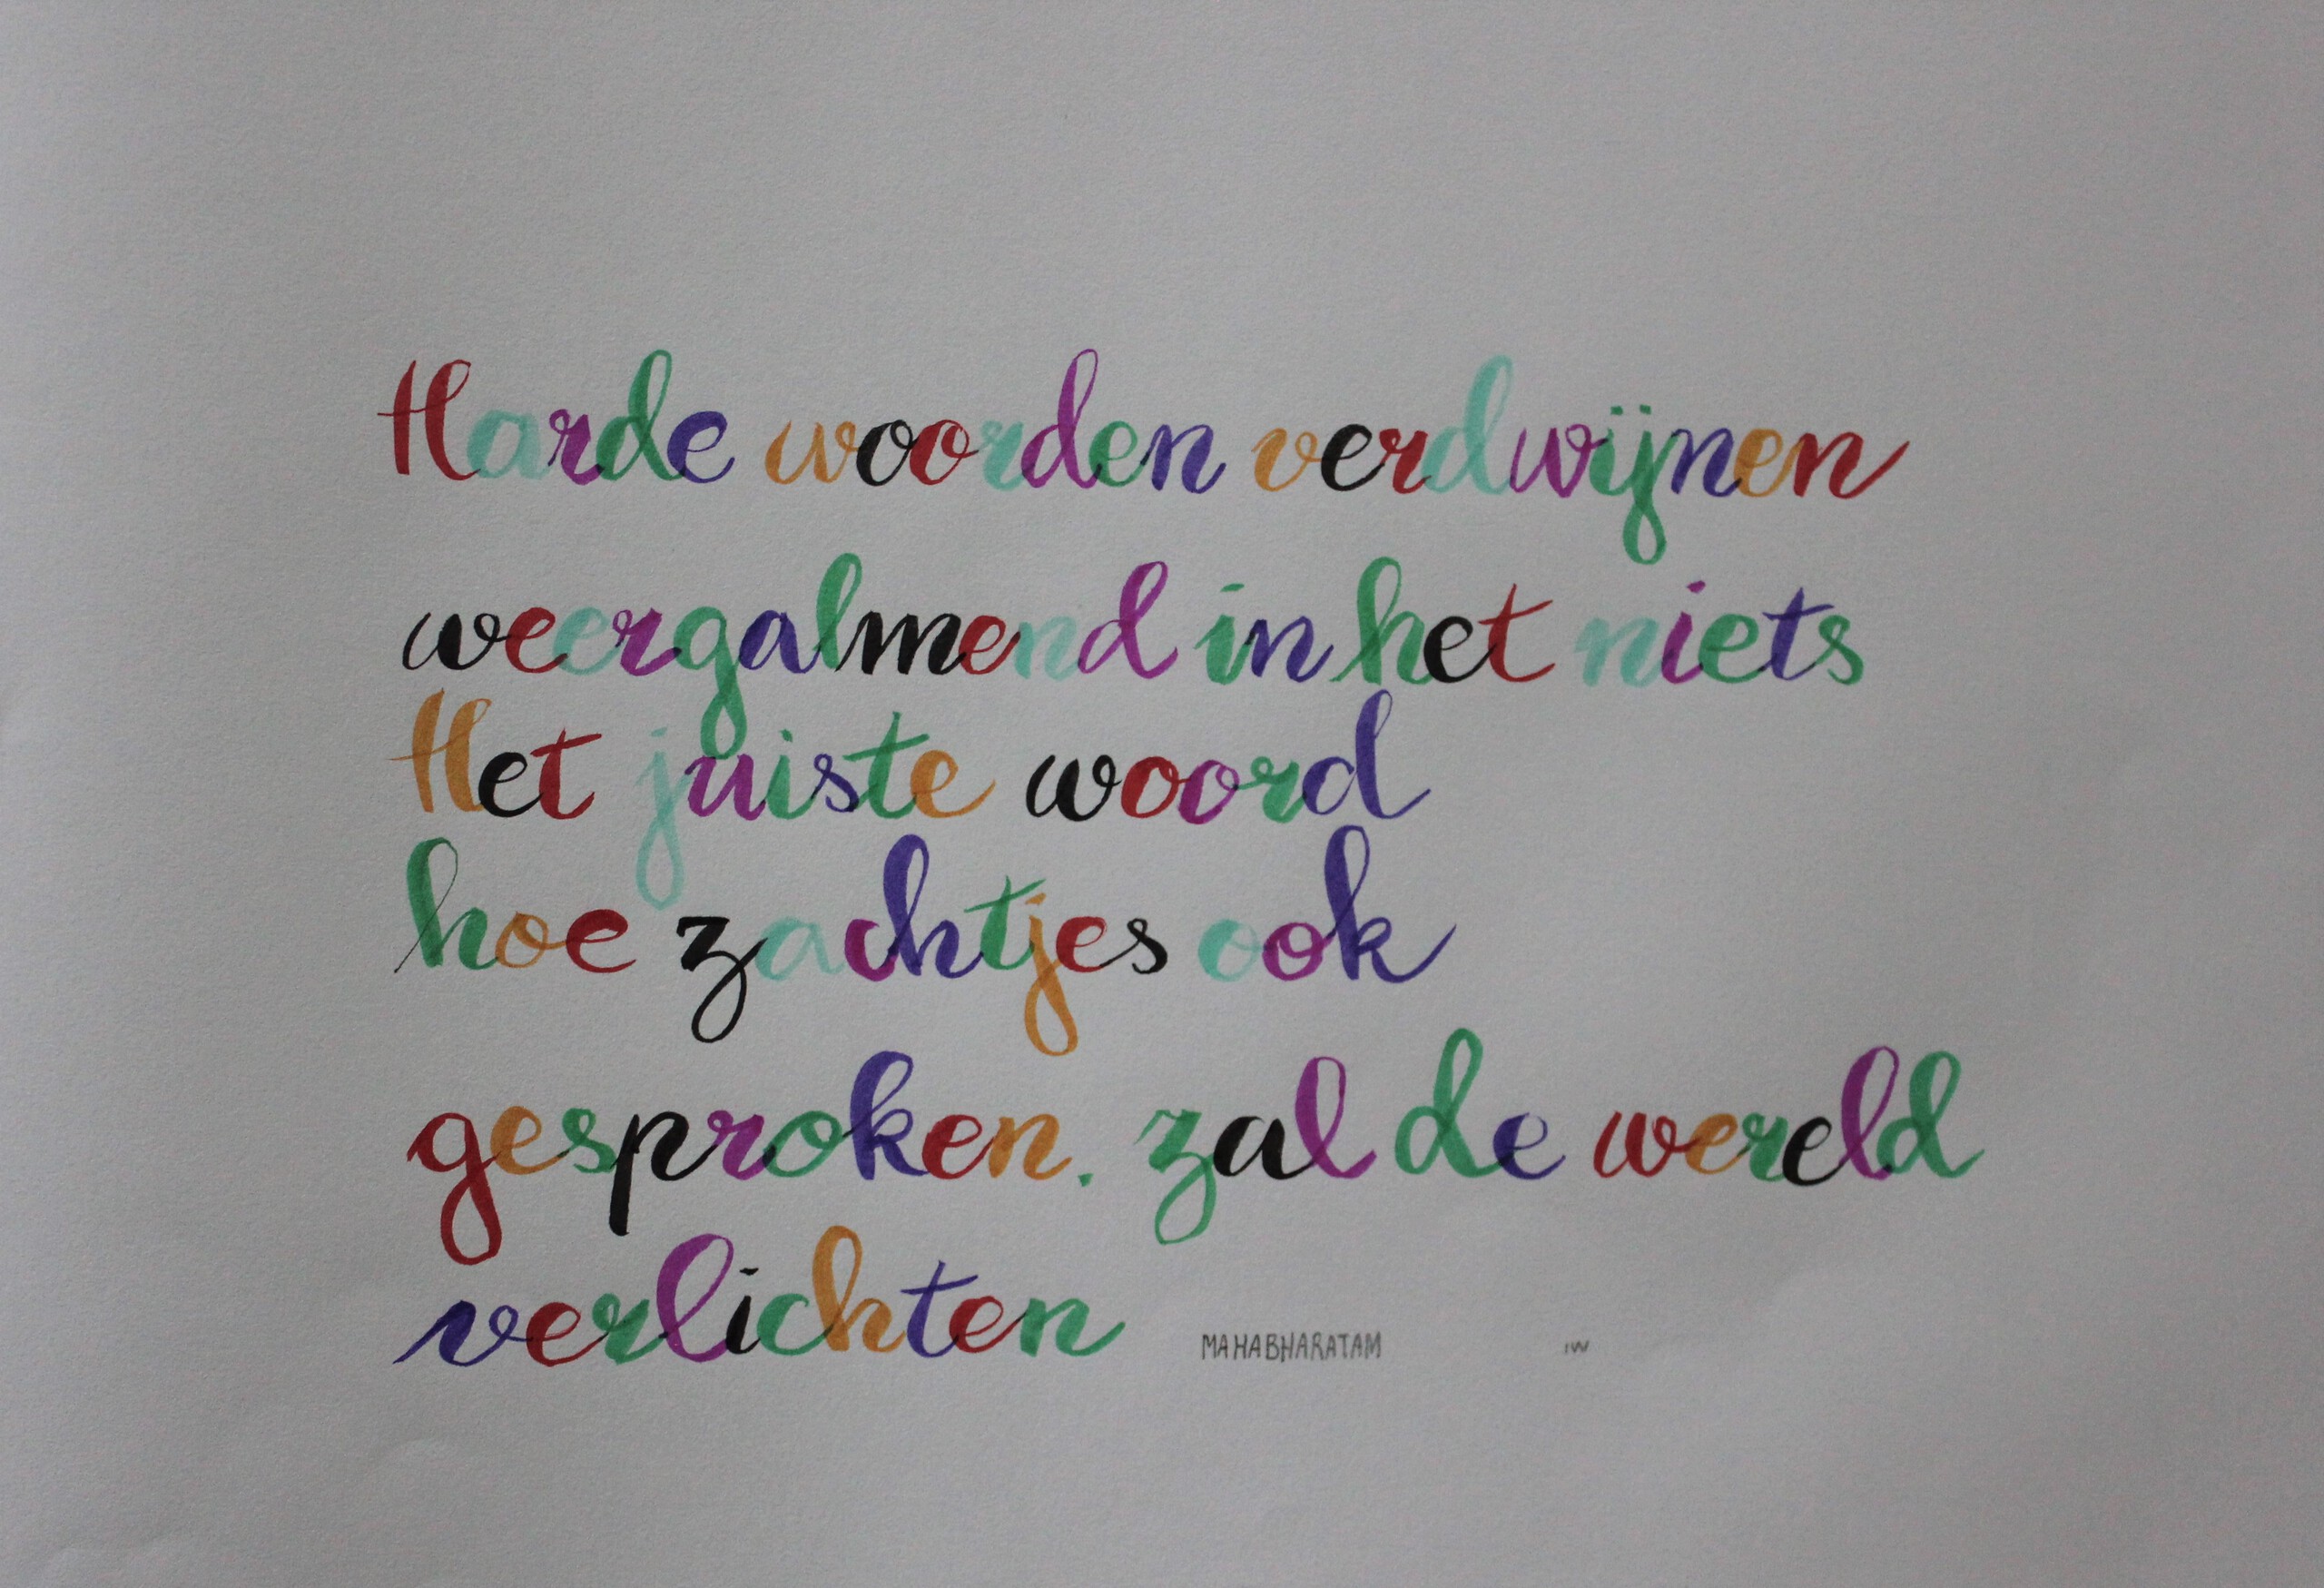 Harde woorden verdwijnen
weergalmend in het niets
Het juiste woord
hoe zachtjes ook
gesproken. zal de wereld
verlichten MAHABHARATAM IW